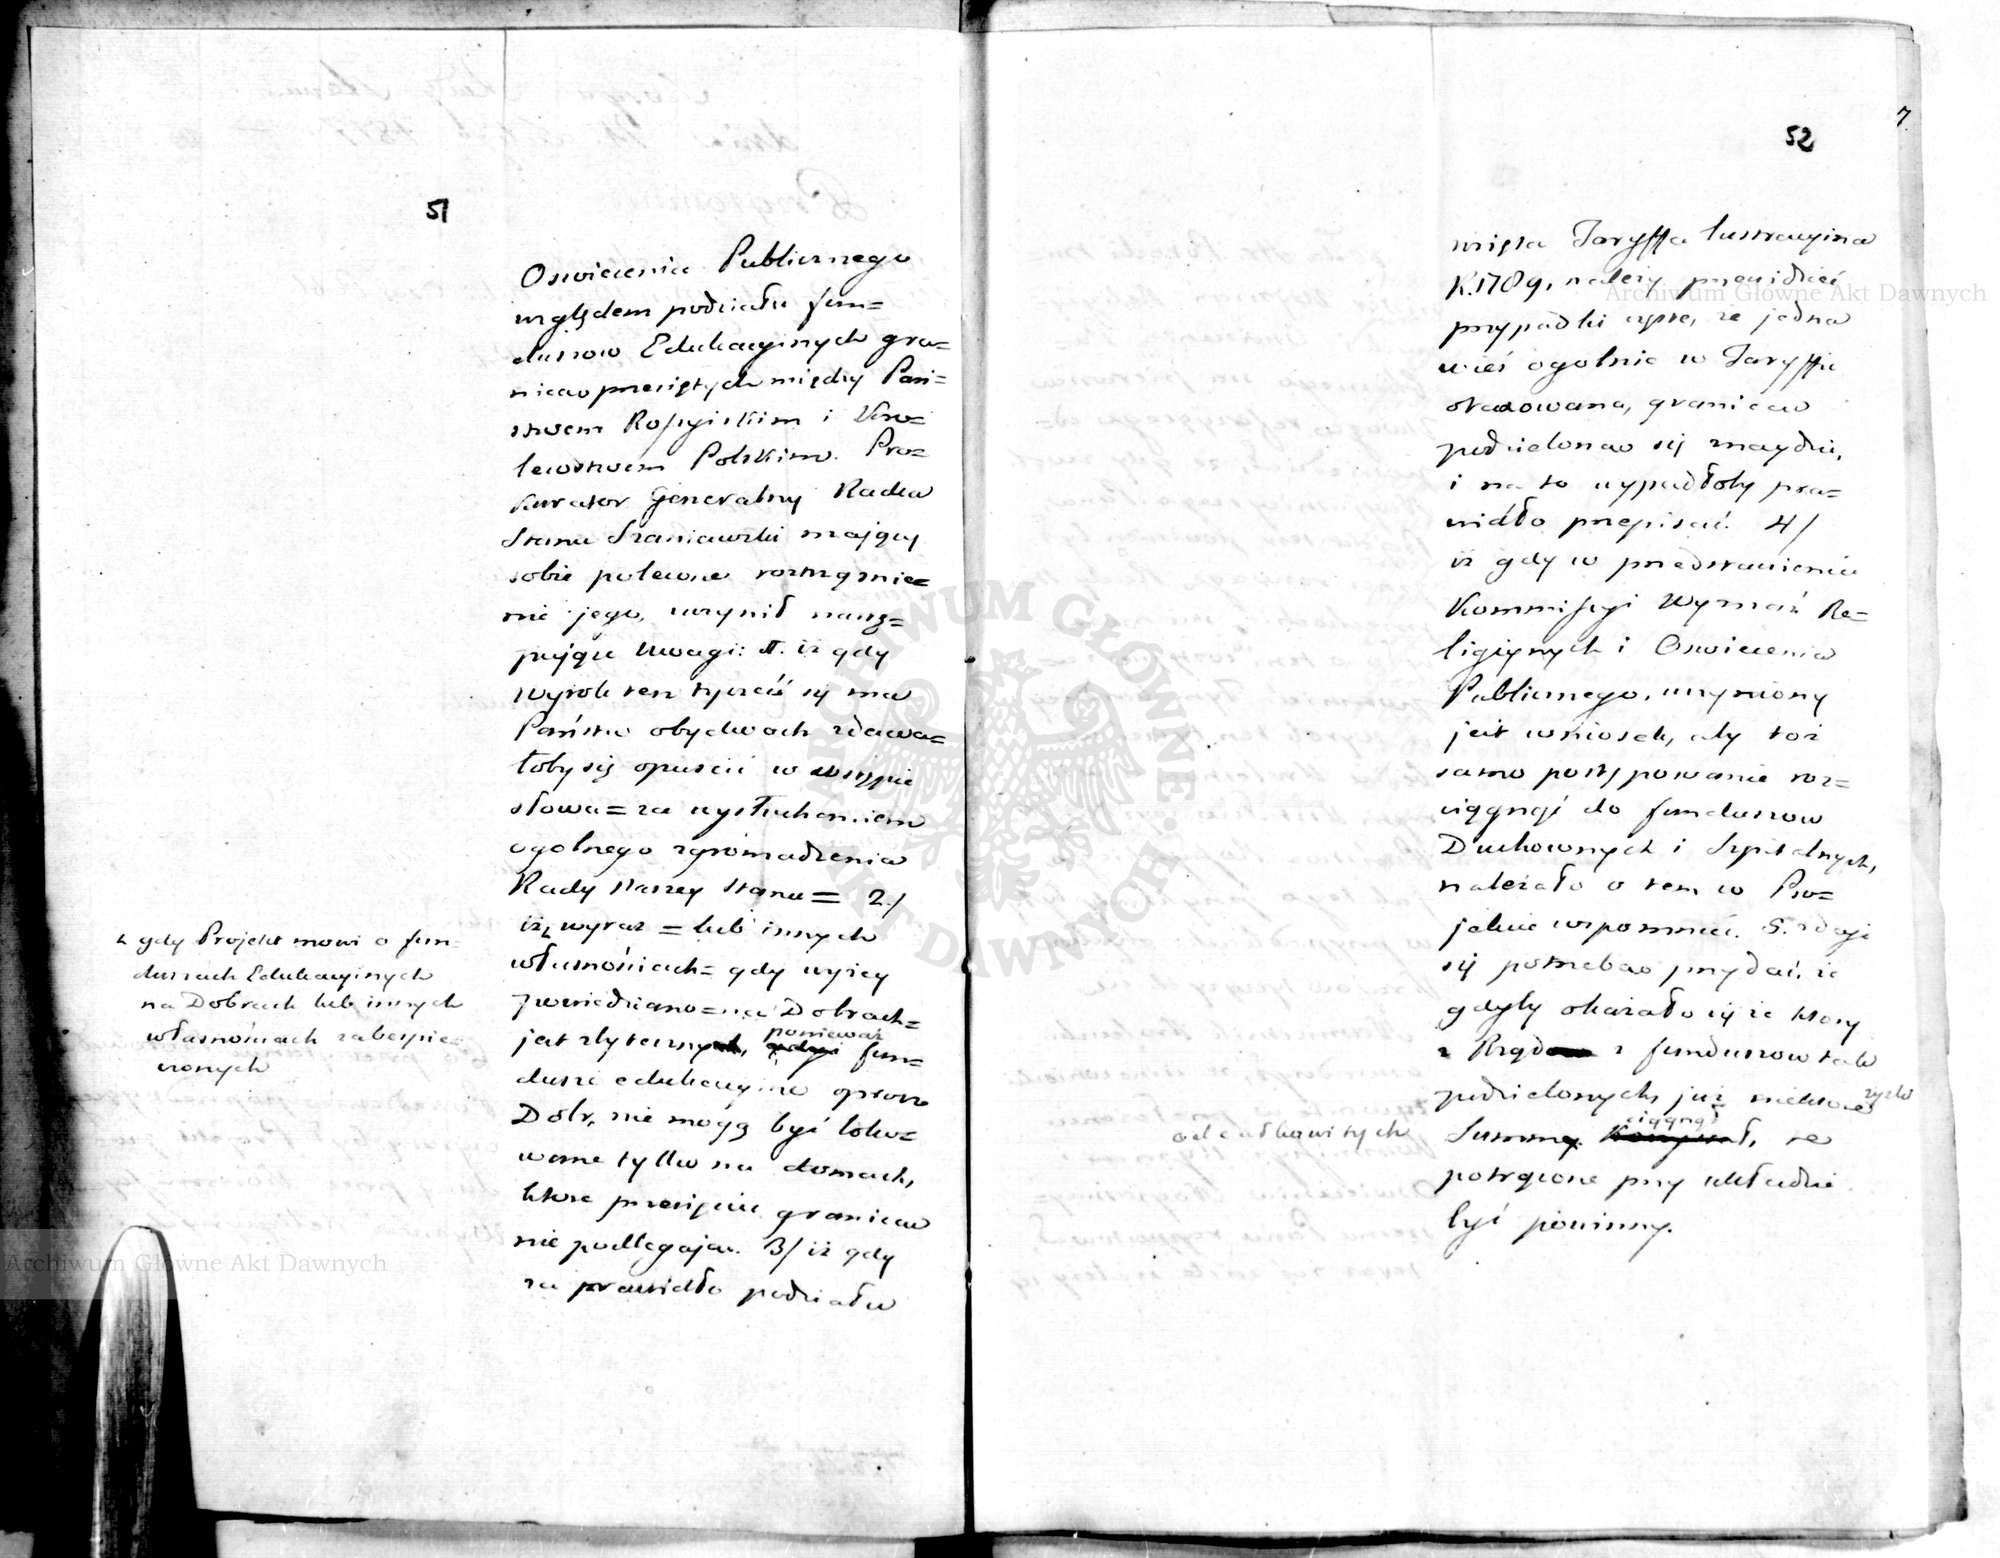 51
Oswiecenia Publicznego
względem podziału fun=
duszow Edukacyinych gra=
nicą przeciętych między Pań=
stwem Rossyiskim i Kro=
lewstwem Polskim. Pro=
kurator Generalny Radca
Stanu Szaniawski mający
sobie polecone roztrząśnie=
nie jego, uczynił nastę=
pujące Uwagi: 1. iż gdy
wyrok ten tyczeć się ma
Państw obydwoch zdawa=
łoby się opuścić w wstępie
słowa = za wysłuchaniem
ogolnego zgromadzenia
Rady naszey Stanu = 2./
iż, wyraz = lub innych
własnościach = gdy wyżey
powiedziano = na Dobrach =
jest zbyteczny, ponieważ fun=
dusze edukacyine oprocz
Dobr, nie mogą być loko=
wane tylko na domach,
ktore przecięciu granicą
nie podlegają. 3/ iż gdy
za prawidło podziału
gdy Projekt mowi o fun=
duszach Edukacyinych
na Dobrach lub innych
własnościach zabespie=
czonych
7.
52
wzięta Taryffa lustracyina
R. 1789, należy przewidzieć
przypadki czyste, że jedna
wieś ogolnie w Taryffie
otaxowana, granicą
podzieloną się znaydzie,
i na to wypadłoby pra=
widło przepisać. 4/
iż gdy w przedstawieniu
Kommissyi Wyznań Re=
ligiynych i Oswiecenia
Publicznego, uczyniony
jest wniosek, aby toż
samo postępowanie roz=
ciągnąć do funduszow
Duchownych i Szpitalnych,
należało o tem w Pro=
jekcie wspomnieć. 5. zdaje
się potrzebą przydać, że
gdyby okazało się że ktory
z Rządow z funduszow tak
podzielonych, już niektore
Summy ciągnął, te
od całkowitych
potrącone przy układzie
być powinny.